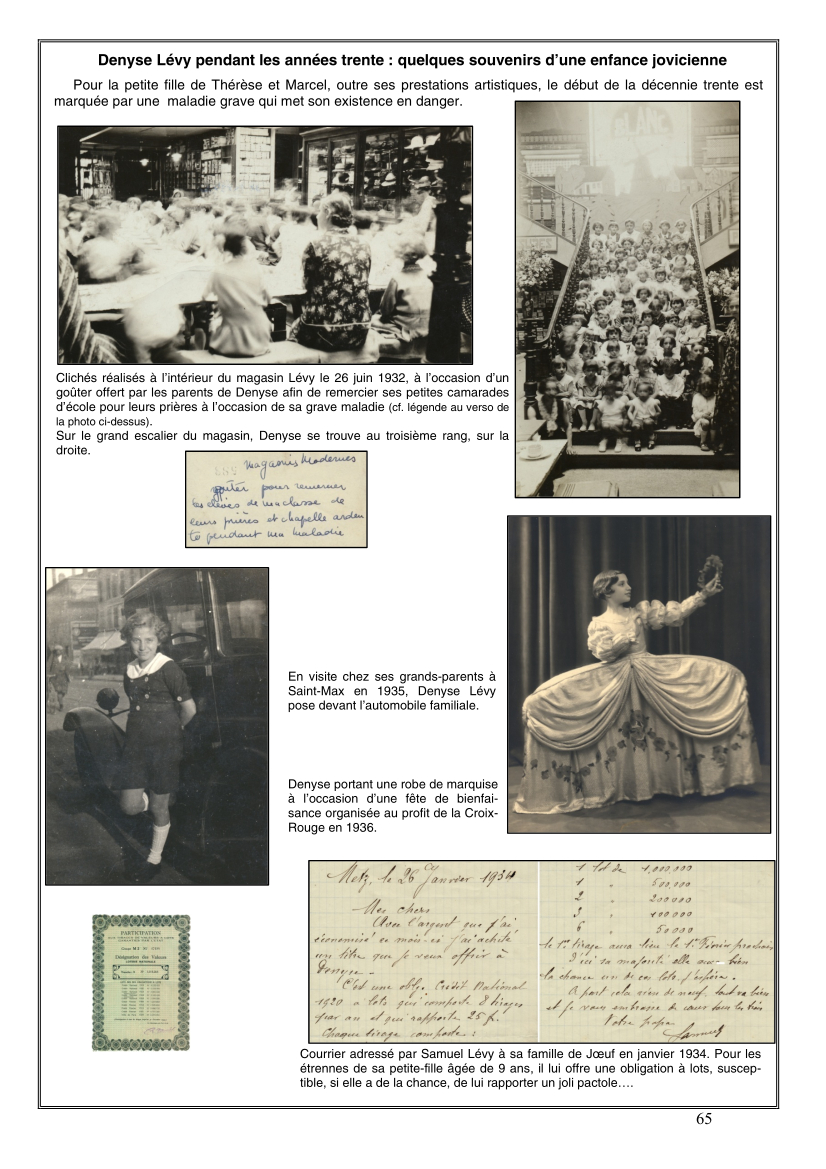 Denyse Lévy pendant les années trente : quelques souvenirs d’une enfance jovicienne
Pour la petite fille de Thérèse et Marcel, outre ses prestations artistiques, le début de la décennie trente est
marquée par une maladie grave qui met son existence en danger.
BLANC
Clichés réalisés à l’intérieur du magasin Lévy le 26 juin 1932, à l’occasion d’un
goûter offert par les parents de Denyse afin de remercier ses petites camarades
d’école pour leurs prières à l’occasion de sa grave maladie (cf. légende au verso de
la photo ci-dessus).
Sur le grand escalier du magasin, Denyse se trouve au troisième rang, sur la
droite.
Magasins Modernes
goûter pour remercier
les élèves de ma classe de
leurs prières et chapelle arden
te pendant ma maladie
En visite chez ses grands-parents à
Saint-Max en 1935, Denyse Lévy
pose devant l’automobile familiale.
Denyse portant une robe de marquise
à l’occasion d’une fête de bienfai-
sance organisée au profit de la Croix-
Rouge en 1936.
Metz, le 26 Janvier 1934
Mes chers
Avec l'argent que j'ai
économisé ce mois-ci j'ai acheté
un titre que je veux offrir à
Denyse.
C'est une oblig. Crédit National
1920 à lots qui comporte 8 tirages
par an et qui rapporte 25 f.
Chaque tirage comporte :
1 lot de 1,000,000
1 " 500,000
2 " 200000
3 " 100000
6 " 50000
le 1er tirage aura lieu le 1er Février prochain
D'ici sa majorité elle aura bien
la chance un de ces lots j'espère.
A part cela rien de neuf, tout va bien
et je vous embrasse de cœur tous les trois
Votre papa
Samuel
PARTICIPATION
Désignation des Valeurs
Courrier adressé par Samuel Lévy à sa famille de Jœuf en janvier 1934. Pour les
étrennes de sa petite-fille âgée de 9 ans, il lui offre une obligation à lots, suscep-
tible, si elle a de la chance, de lui rapporter un joli pactole….
65